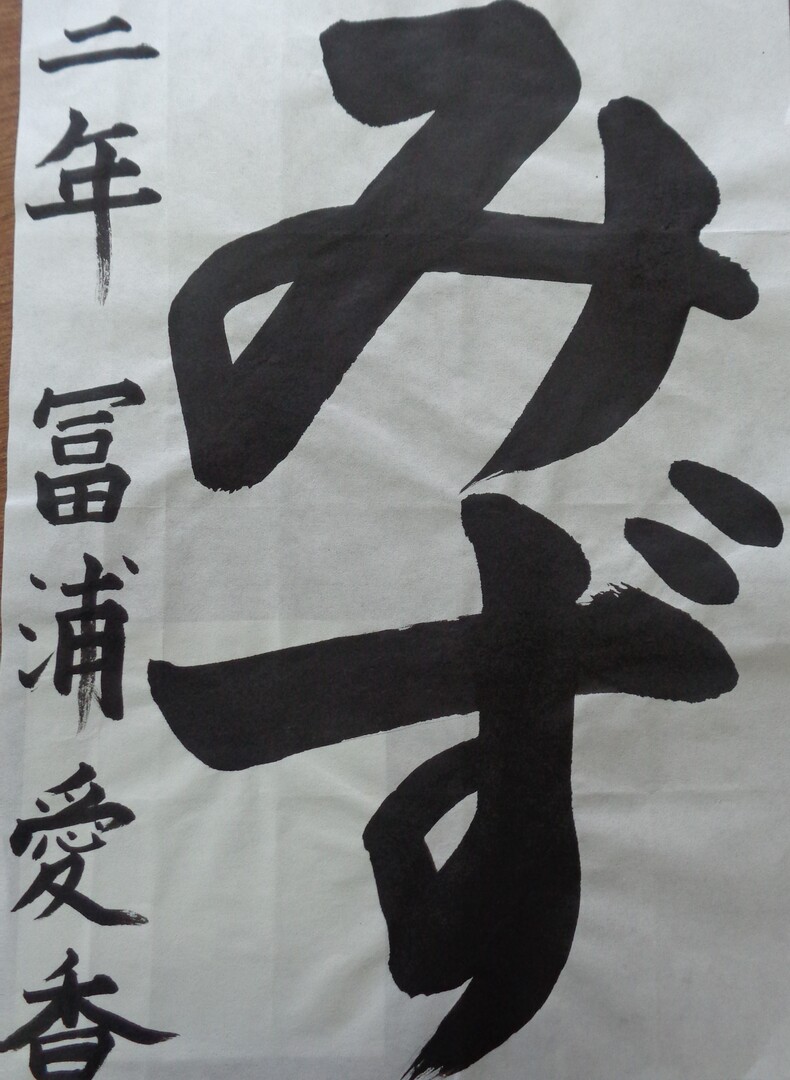 みず
二年 冨浦愛香